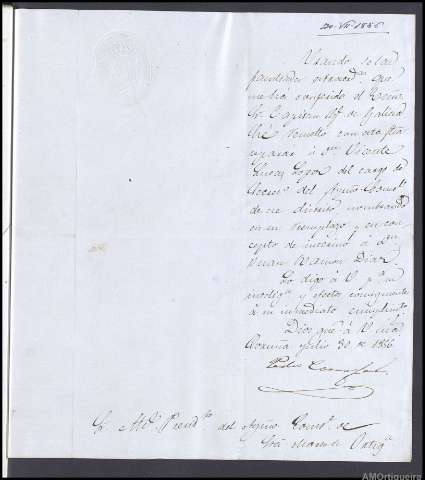 30-VII-1856
Usando de las
facultades estraord.s que
me há conferido el Escmo
Sr. Capitan Gl. de Galicia
hé resuelto con esta fha
separar á Dn. Vicente
Lopez del cargo de
Secreo. del Ayunto. Constl.
de ese distrito nombrando
en su reemplazo y en con-
cepto de interino á Dn.
Juan Ramon Diaz.
Lo digo á V. pa. su
inteliga. y efectos consiguientes
á su inmediato cumplimto.
Dios gue. á V. ms. as.
Coruña Julio 30 de 1856.
Pedro
Sr. Alce. Presidte. del Ayunto. Constl. de
Sta. Marta de Ortiga.
AMOrtigueira